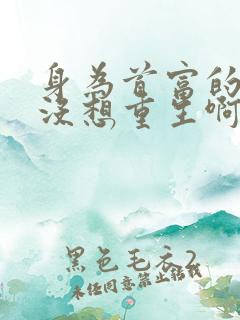 身为首富的
没想重生啊
黑色毛衣2
未经同意禁止转载